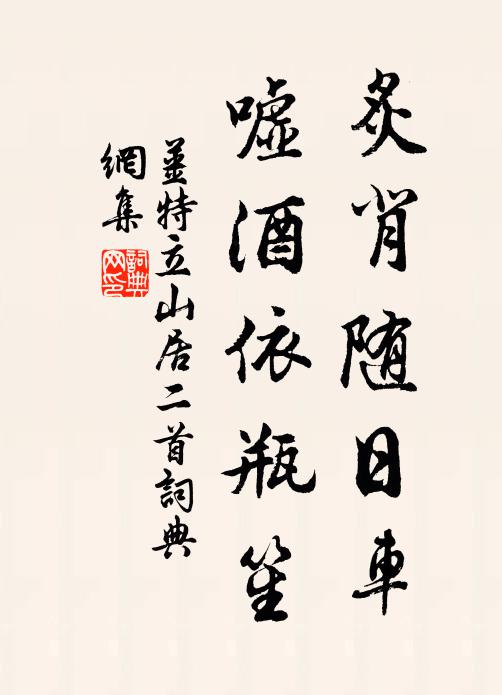 炙背随日車
噓酒依瓶笙
薑特立山居二首詞典
網集
詞典
网印